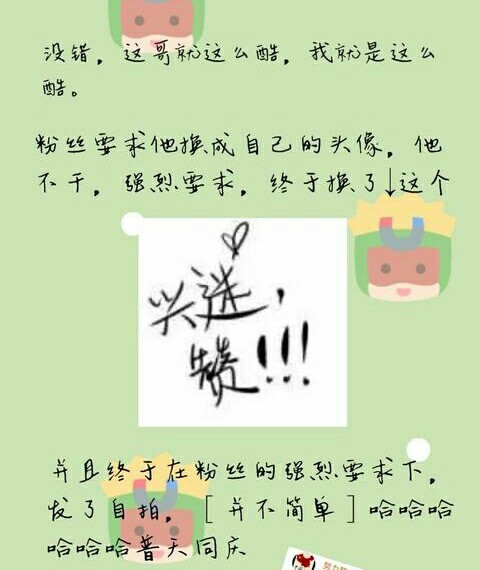 没错，这哥就这么酷，我就是这么
酷。
粉丝要求他换成自己的头像，他
不干，强烈要求，终于换了↓这个
兴迷，
赞!!!
并且终于在粉丝的强烈要求下，
发了自拍，［并不简单］哈哈哈
哈哈哈普天同庆